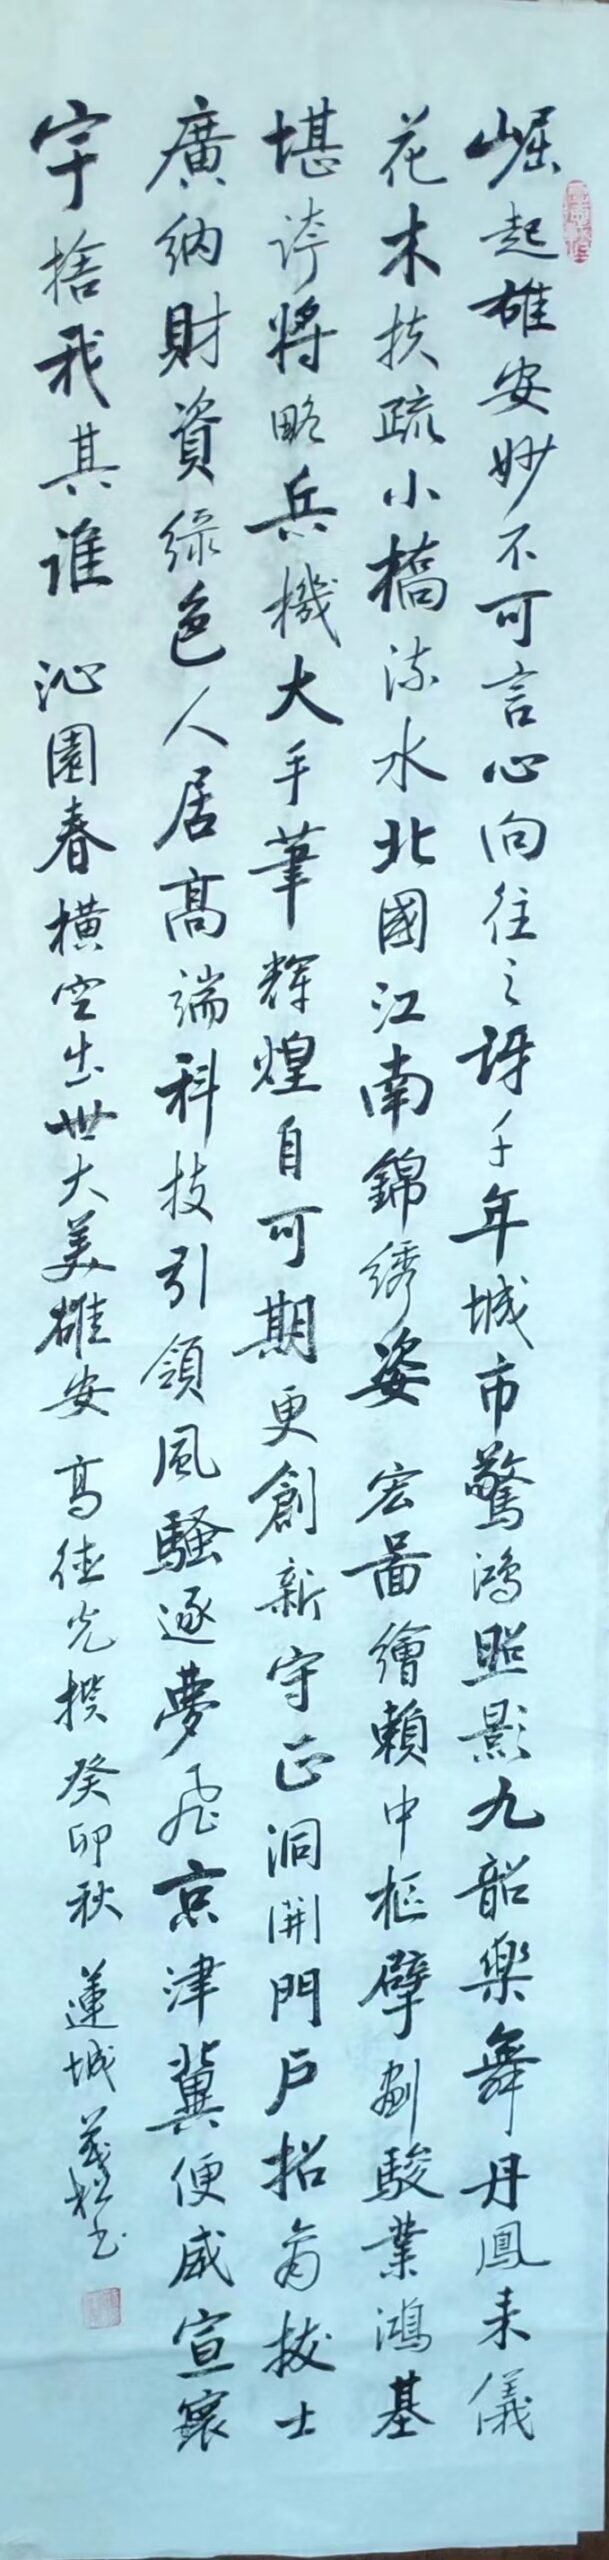 崛起雄安妙不可言心向往之訝千年城市驚鴻照影九韶樂舞丹鳳来儀
花木扶疏小橋流水北國江南錦绣姿宏啚繪賴中樞擘劃駿業鴻基
堪誇將略兵機大手筆輝煌自可期更創新守正洞開門戶招商拔士
廣納財資绿色人居高端科技引領風騷逐夢飛京津冀便威宣寰
宇捨我其谁 沁園春橫空出世大美雄安 高德光撰 癸卯秋 蓮城 茂松书